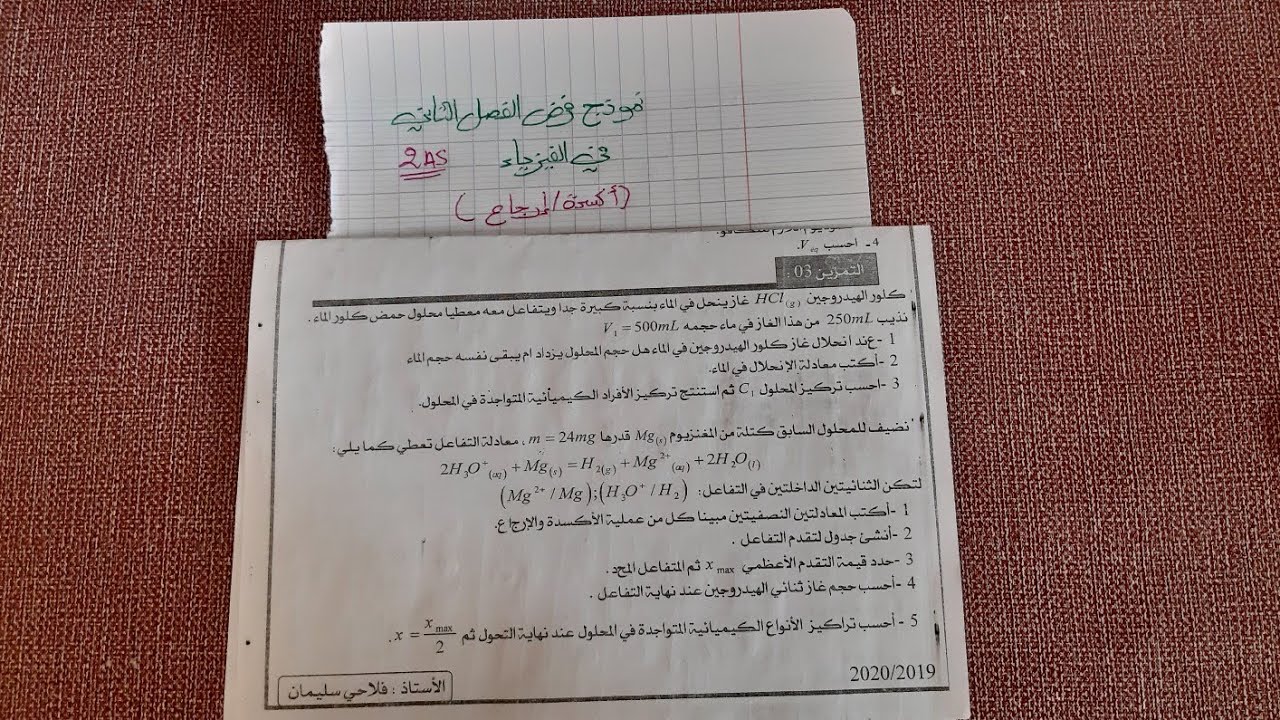 نموذج فرض الفصل الثاني
في الفيزياء 2AS
(أكسدة/إرجاع)
4 ـ احسب Véq.
التمرين 03 :
كلور الهيدروجين HCl(g) غاز ينحل في الماء بنسبة كبيرة جدا ويتفاعل معه معطيا محلول حمض كلور الماء .
نذيب 250mL من هذا الغاز في ماء حجمه V1 = 500mL
1 -عند انحلال غاز كلور الهيدروجين في الماء هل حجم المحلول يزداد ام يبقى نفسه حجم الماء
2 -أكتب معادلة الإنحلال في الماء.
3 -احسب تركيز المحلول C1 ثم استنتج تركيز الأفراد الكيميائية المتواجدة في المحلول.
نضيف للمحلول السابق كتلة من المغنزيوم Mg(s) قدرها m = 24mg ، معادلة التفاعل تعطي كما يلي :
2H3O+(aq) + Mg(s) = H2(g) + Mg2+(aq) + 2H2O(l)
لتكن الثنائيتين الداخلتين في التفاعل: (Mg2+ / Mg);(H3O+ / H2)
1 -أكتب المعادلتين النصفيتين مبينا كل من عملية الأكسدة والإرجاع.
2 -أنشئ جدول لتقدم التفاعل .
3 -حدد قيمة التقدم الأعظمي xmax ثم المتفاعل المحد .
4 -أحسب حجم غاز ثنائي الهيدروجين عند نهاية التفاعل .
5 - أحسب تراكيز الأنواع الكيميائية المتواجدة في المحلول عند نهاية التحول ثم x = xmax/2 .
2020/2019
الأستاذ : فلاحي سليمان